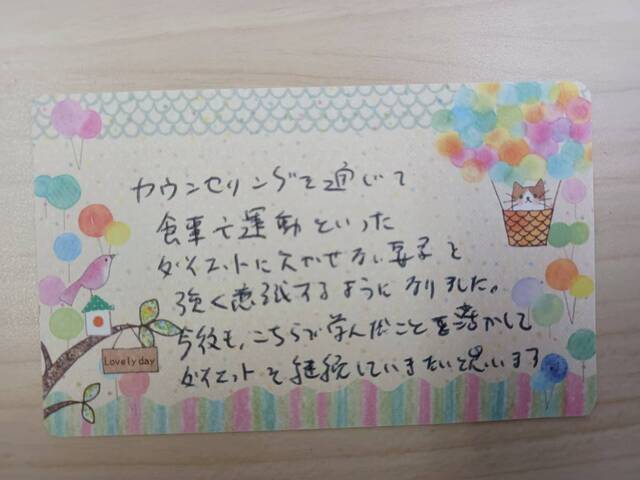 カウンセリングを通じて
食事や運動といった
ダイエットに欠かせない要子を
強く意識するようになりました。
今後も、こちらで学んだことを活かして
ダイエットを継続していきたいと思います
Lovely day